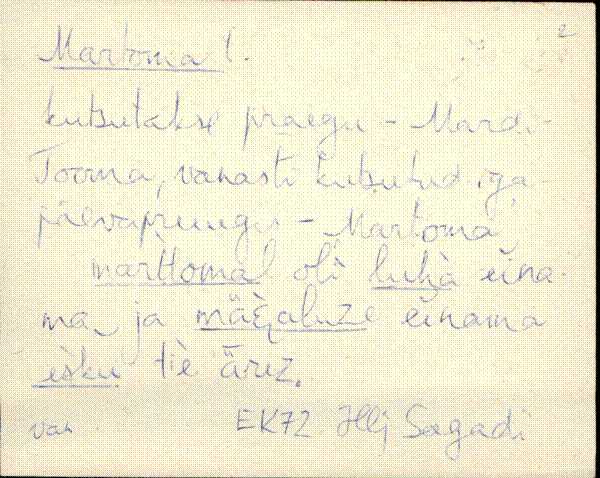 2
Martoma t.
kutsutakse praegu - Mardi-
Tooma, vanasti kutsutud iga
päevapruugis - Martoma
marttomal oli luhà eina-
ma ja mäèaluze einama
esku tiè ärez.
van EK72 Hlj Sagadi